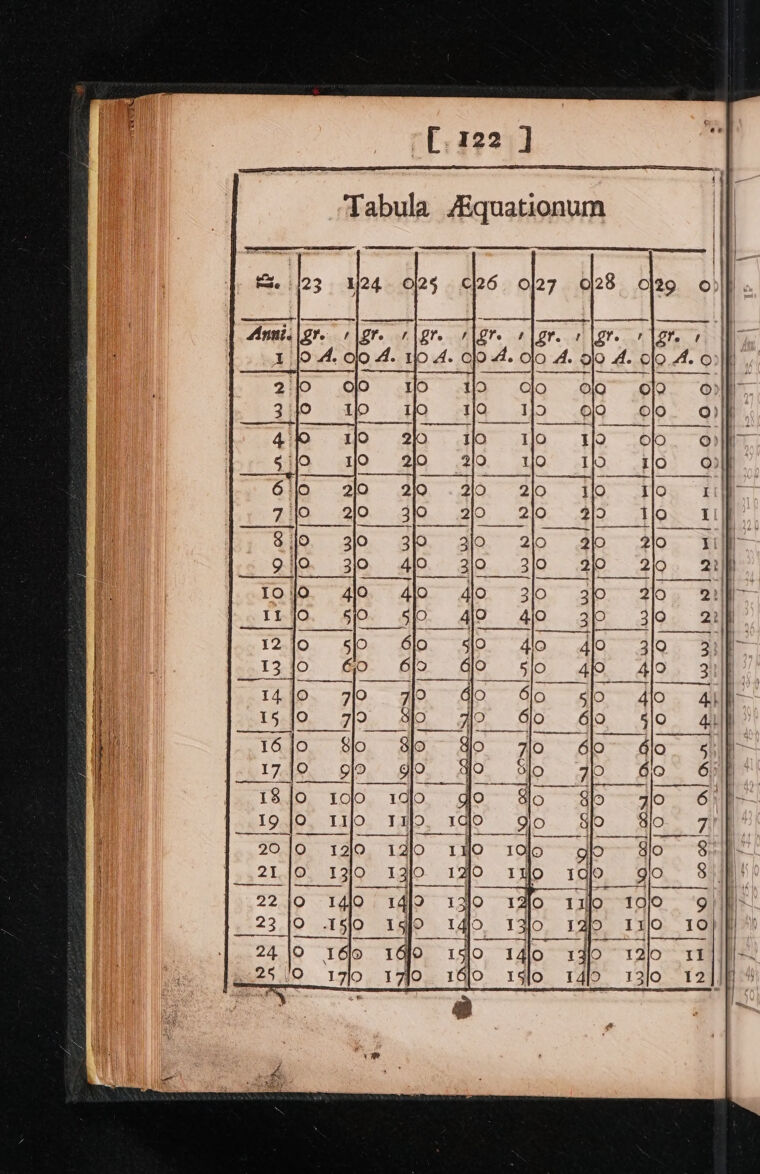 [ 122 ]
Tabula Æquationum
♎. 23 1 24 0 25 0 26 0 27 0 28 0 29 0
Anni. gr. ′ gr. ′ gr. ′ gr. ′ gr. ′ gr. ′ gr. ′
1 0 A. 0 0 A. 1 0 A. 0 0 A. 0 0 A. 0 0 A. 0 0 A. 0
2 0 0 0 1 0 1 0 0 0 0 0 0 0 0
3 0 1 0 1 0 1 0 1 0 0 0 0 0 0
4 0 1 0 2 0 1 0 1 0 1 0 0 0 0
5 0 1 0 2 0 2 0 1 0 1 0 1 0 0
6 0 2 0 2 0 2 0 2 0 1 0 1 0 1
7 0 2 0 3 0 2 0 2 0 2 0 1 0 1
8 0 3 0 3 0 3 0 2 0 2 0 2 0 1
9 0 3 0 4 0 3 0 3 0 2 0 2 0 2
10 0 4 0 4 0 4 0 3 0 3 0 2 0 2
11 0 5 0 5 0 4 0 4 0 3 0 3 0 2
12 0 5 0 6 0 5 0 4 0 4 0 3 0 3
13 0 6 0 6 0 6 0 5 0 4 0 4 0 3
14 0 7 0 7 0 6 0 6 0 5 0 4 0 4
15 0 7 0 8 0 7 0 6 0 6 0 5 0 4
16 0 8 0 8 0 8 0 7 0 6 0 6 0 5
17 0 9 0 9 0 8 0 8 0 7 0 6 0 6
18 0 10 0 10 0 9 0 8 0 8 0 7 0 6
19 0 11 0 11 0 10 0 9 0 8 0 8 0 7
20 0 12 0 12 0 11 0 10 0 9 0 8 0 8
21 0 13 0 13 0 12 0 11 0 10 0 9 0 8
22 0 14 0 14 0 13 0 12 0 11 0 10 0 9
23 0 15 0 15 0 14 0 13 0 12 0 11 0 10
24 0 16 0 16 0 15 0 14 0 13 0 12 0 11
25 0 17 0 17 0 16 0 15 0 14 0 13 0 12